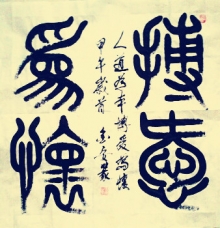 博愛
為懷
人道為本博愛為懷
甲午歲首